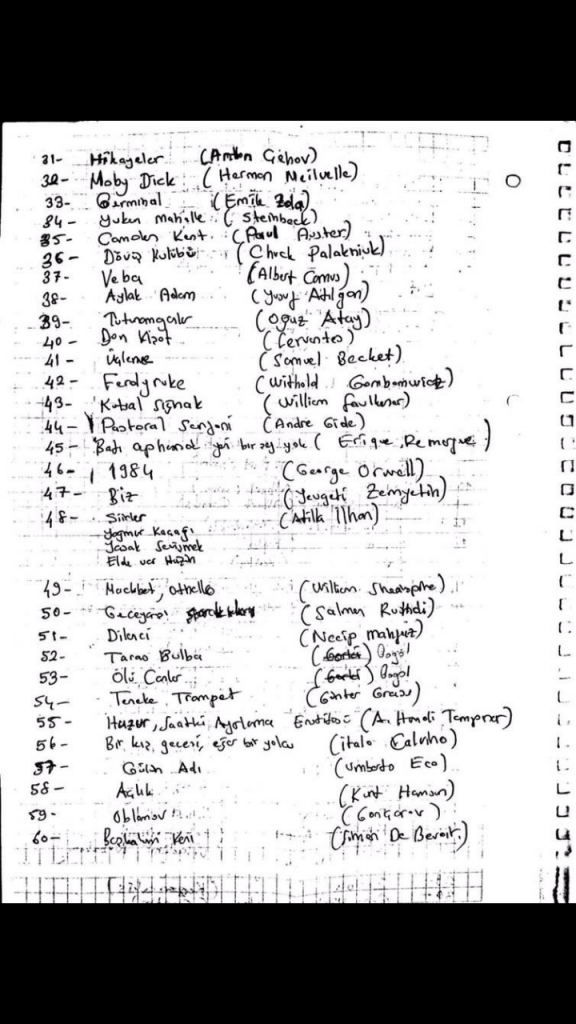 31- Hikayeler (Anton Çehov)
32- Moby Dick (Herman Meilvelle)
33- Germinal (Emile Zola)
34- Yukarı mahalle (Steinbeck)
35- Camdan Kent (Paul Auster)
36- Dövüş Kulübü (Chuck Palahniuk)
37- Veba (Albert Camus)
38- Aylak Adam (Yusuf Atılgan)
39- Tutunamayanlar (Oğuz Atay)
40- Don Kişot (Cervantes)
41- Üçleme (Samuel Becket)
42- Ferdydurke (Withold Gombrowicz)
43- Kutsal Sığınak (William Faulkner)
44- Pastoral Senfoni (Andre Gide)
45- Batı cephesinde yeni bir şey yok (Erique Remarque)
46- 1984 (George Orwell)
47- Biz (Yevgeti Zemyetin)
48- Şiirler (Atilla İlhan)
Yağmur Kaçağı
Yasak Sevişmek
Elde var Hüzün
49- Macbet, othello (William Sheaspire)
50- Geceyarısı çocukları (Salman Ruthdi)
51- Dilenci (Necip Mahfuz)
52- Taras Bulba (Gorki) Gogol
53- Ölü Canlar (Gorki) Gogol
54- Teneke Trampet (Günter Grass)
55- Huzur, Saatleri Ayarlama Enstitüsü (A. Hamdi Tanpınar)
56- Bir kış gecesi, eğer bir yolcu (italo Calvino)
57- Gülün Adı (Umberto Eco)
58- Açlık (Knut Hamsun)
59- Oblomov (Gonçarov)
60- Başkalarının Kanı (Simon De Bevoir)